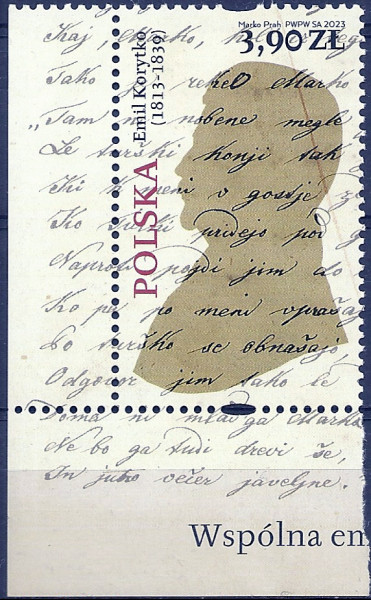 Marko Prah PWPW SA 2023
3,90 ZŁ
POLSKA
Emil Korytko
(1813-1839)
Kaj, Marko,
Tako rekel Marko
„Tam ni nobene megle
Le turski konji tak
Ki k meni v gostje
Ko turki pridejo
Naproti pojdi jim do
Ko pa po meni vprašaj
Bo turško se obnašajo
Odgovor jim tako le
Doma ni mlad'ga Marka
Ne bo ga tudi drevi še,
In jutro večer javeljne.
Wspólna em